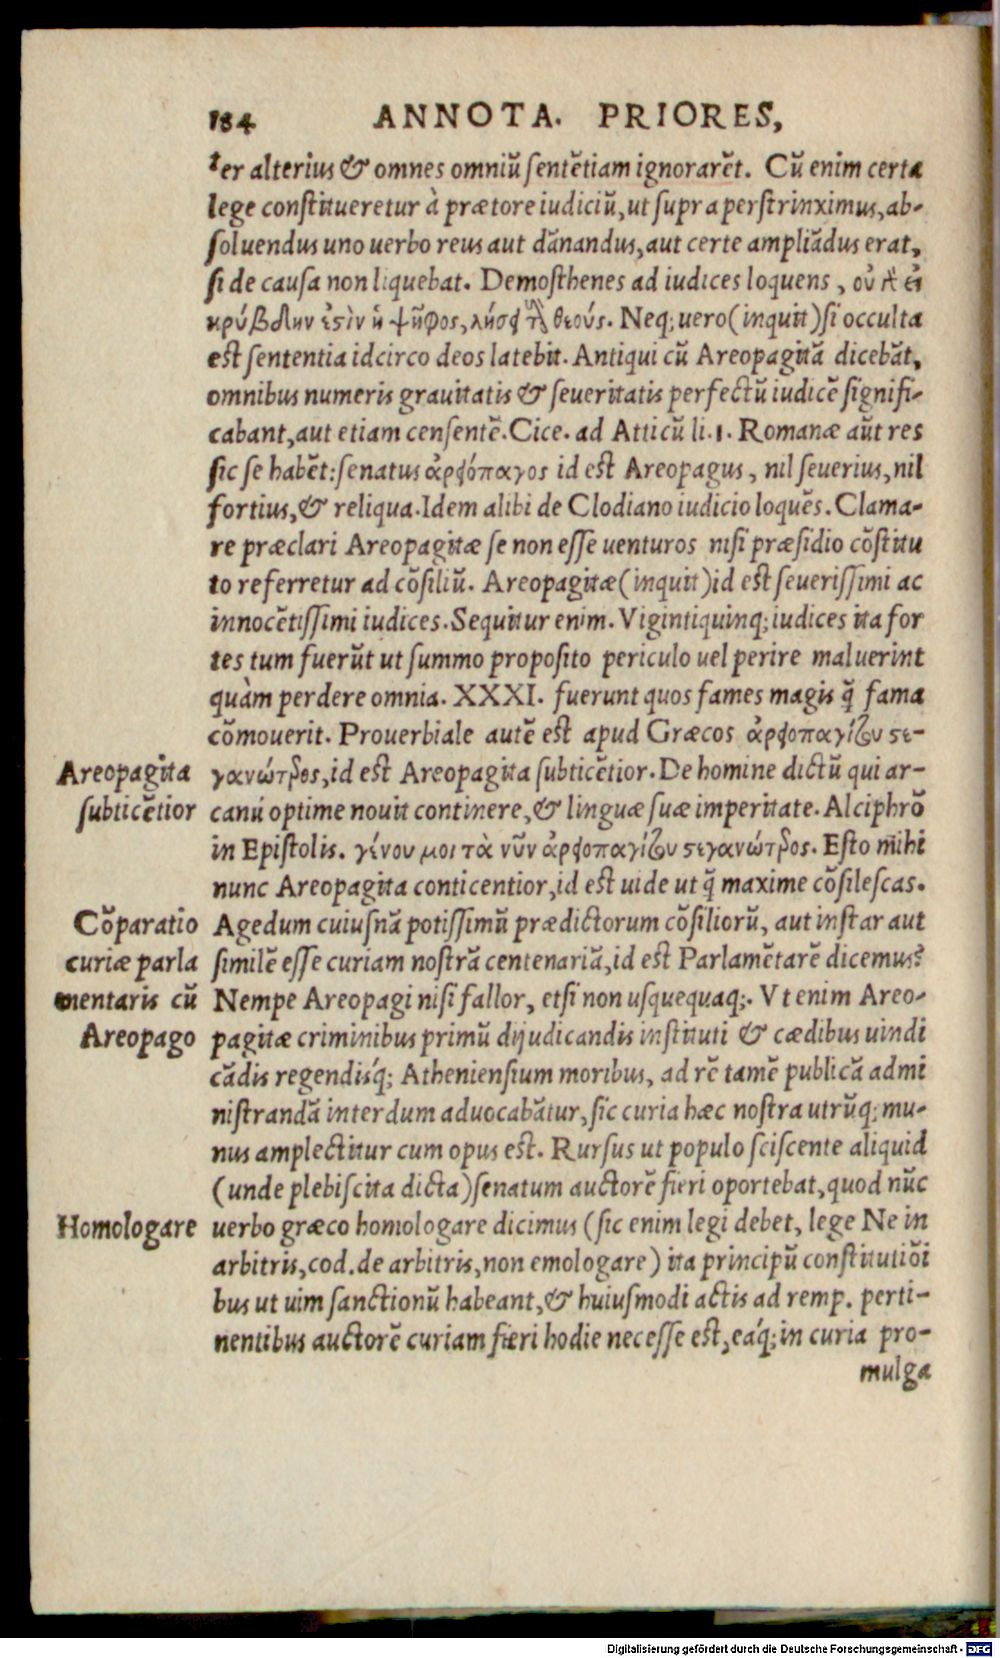 184 ANNOTA. PRIORES,
ter alterius & omnes omniũ sentẽtiam ignorarẽt. Cũ enim certa
lege constitueretur à prætore iudiciũ, ut supra perstrinximus, ab-
soluendus uno uerbo reus aut dãnandus, aut certe ampliãdus erat,
si de causa non liquebat. Demosthenes ad iudices loquens, οὐ εἰ
κρύβδην ἐστὶν ἡ ψῆφος, λήσει θεούς. Neq; uero (inquit) si occulta
est sententia idcirco deos latebit. Antiqui cũ Areopagitã dicebãt,
omnibus numeris grauitatis & seueritatis perfectũ iudicẽ signifi-
cabant, aut etiam censentẽ. Cice. ad Atticũ li. 1. Romanæ aũt res
sic se habẽt: senatus ἀρειόπαγος id est Areopagus, nil seuerius, nil
fortius, & reliqua. Idem alibi de Clodiano iudicio loquẽs. Clama-
re præclari Areopagitæ se non esse uenturos nisi præsidio cõstitu
to referretur ad cõsiliũ. Areopagitæ (inquit) id est seuerissimi ac
innocẽtissimi iudices. Sequitur enim. Vigintiquinq; iudices ita for
tes tum fuerũt ut summo proposito periculo uel perire maluerint
quàm perdere omnia. XXXI. fuerunt quos fames magis q̃ fama
cõmouerit. Prouerbiale autẽ est apud Græcos ἀρειοπαγίτου στε-
Areopagita γανώτερος, id est Areopagita subticẽtior. De homine dictũ qui ar-
subticẽtior canũ optime nouit continere, & linguæ suæ imperitate. Alciphrõ
in Epistolis. γένου μοι τὰ νῦν ἀρειοπαγίτου στεγανώτερος. Esto mihi
nunc Areopagita conticentior, id est uide ut q̃ maxime cõsilescas.
Cõparatio Agedum cuiusnã potissimũ prædictorum cõsiliorũ, aut instar aut
curiæ parla similẽ esse curiam nostrã centenariã, id est Parlamẽtarẽ dicemus?
mentaris cũ Nempe Areopagi nisi fallor, etsi non usquequaq;. Vt enim Areo-
Areopago pagitæ criminibus primũ dijudicandis instituti & cædibus uindi
cãdis regendisq́; Atheniensium moribus, ad rẽ tamẽ publicã admi
nistrandã interdum aduocabãtur, sic curia hæc nostra utrũq; mu-
nus amplectitur cum opus est. Rursus ut populo sciscente aliquid
(unde plebiscita dicta) senatum auctorẽ fieri oportebat, quod nũc
Homologare uerbo græco homologare dicimus (sic enim legi debet, lege Ne in
arbitris, cod. de arbitris, non emologare) ita principũ constitutiõi
bus ut uim sanctionũ habeant, & huiusmodi actis ad remp. perti-
nentibus auctorẽ curiam fieri hodie necesse est, eáq́; in curia pro-
mulga
Digitalisierung gefördert durch die Deutsche Forschungsgemeinschaft - DFG